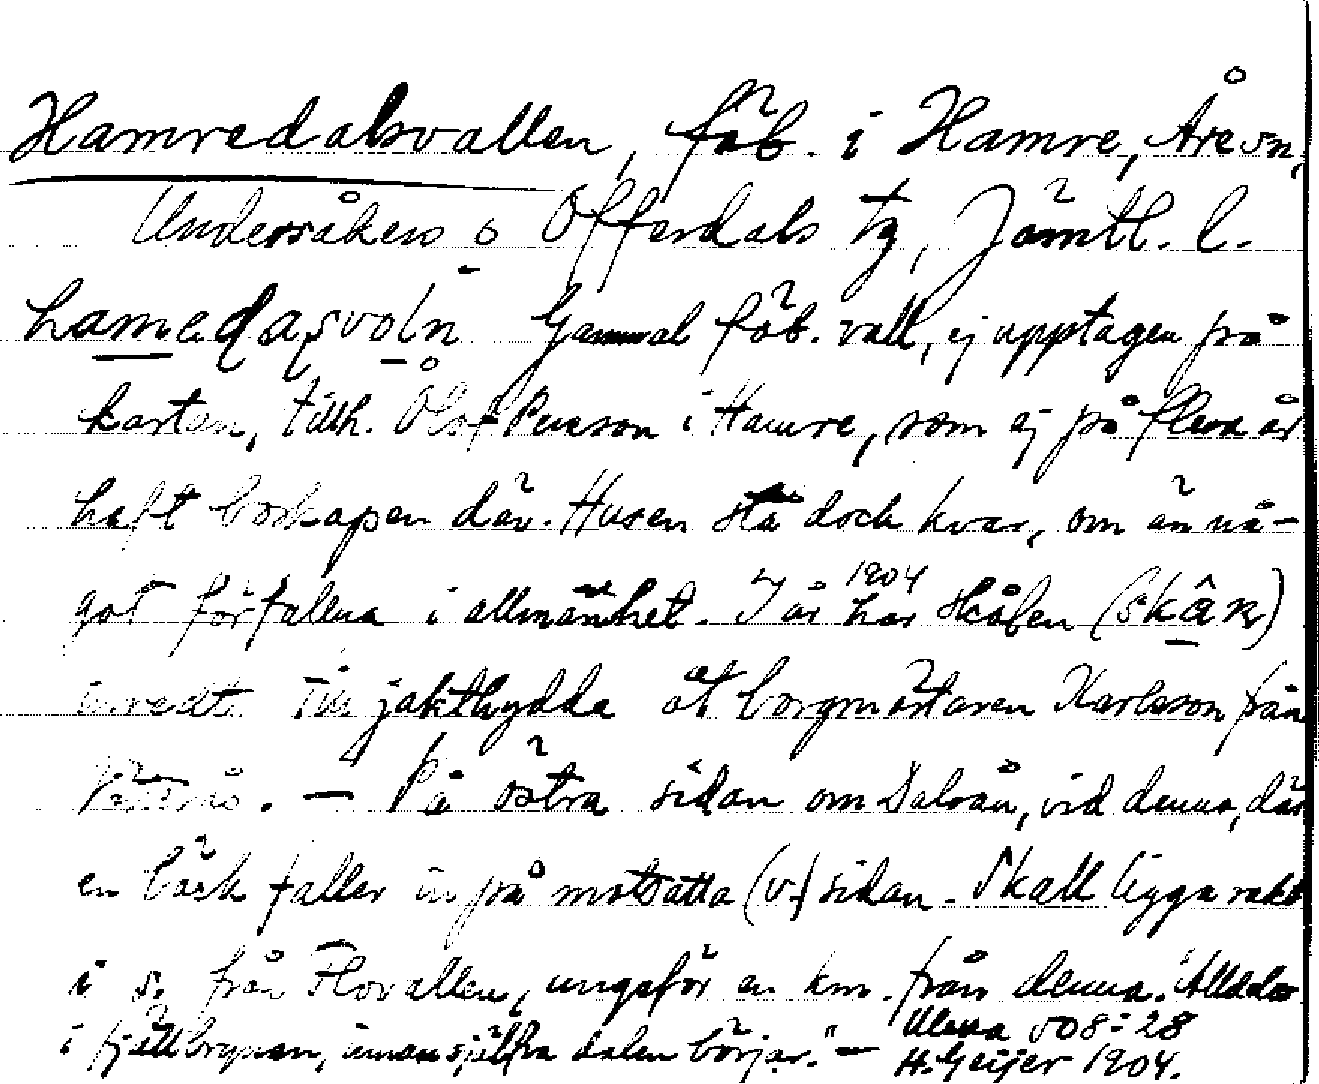 Hamredalsvallen, fäb. i Hamre, Åre sn,
Undersåkers o Offerdals tg, Jämtl. l.
Gammal fäb. vall, ej upptagen på
kartan, tillh. Olof Persson i Hamre, som ej på flera år
haft boskapen där. Husen stå dock kvar, om än nå-
got förfallna i allmänhet. I år 1904 har Skålen (skâɴ)
inredts till jakthydda åt borgmästaren Karlsson från
Västerås. — På östra sidan om Dalsån, vid denna, där
en bäck faller in på motsatta (v.) sidan. Skall ligga rakt
i s. från Flovallen, ungefär en km. från denna. "Alldeles
i fjällbrynen, innan själfva dalen börjar." —
Ulma 508:28
H. Geijer 1904.